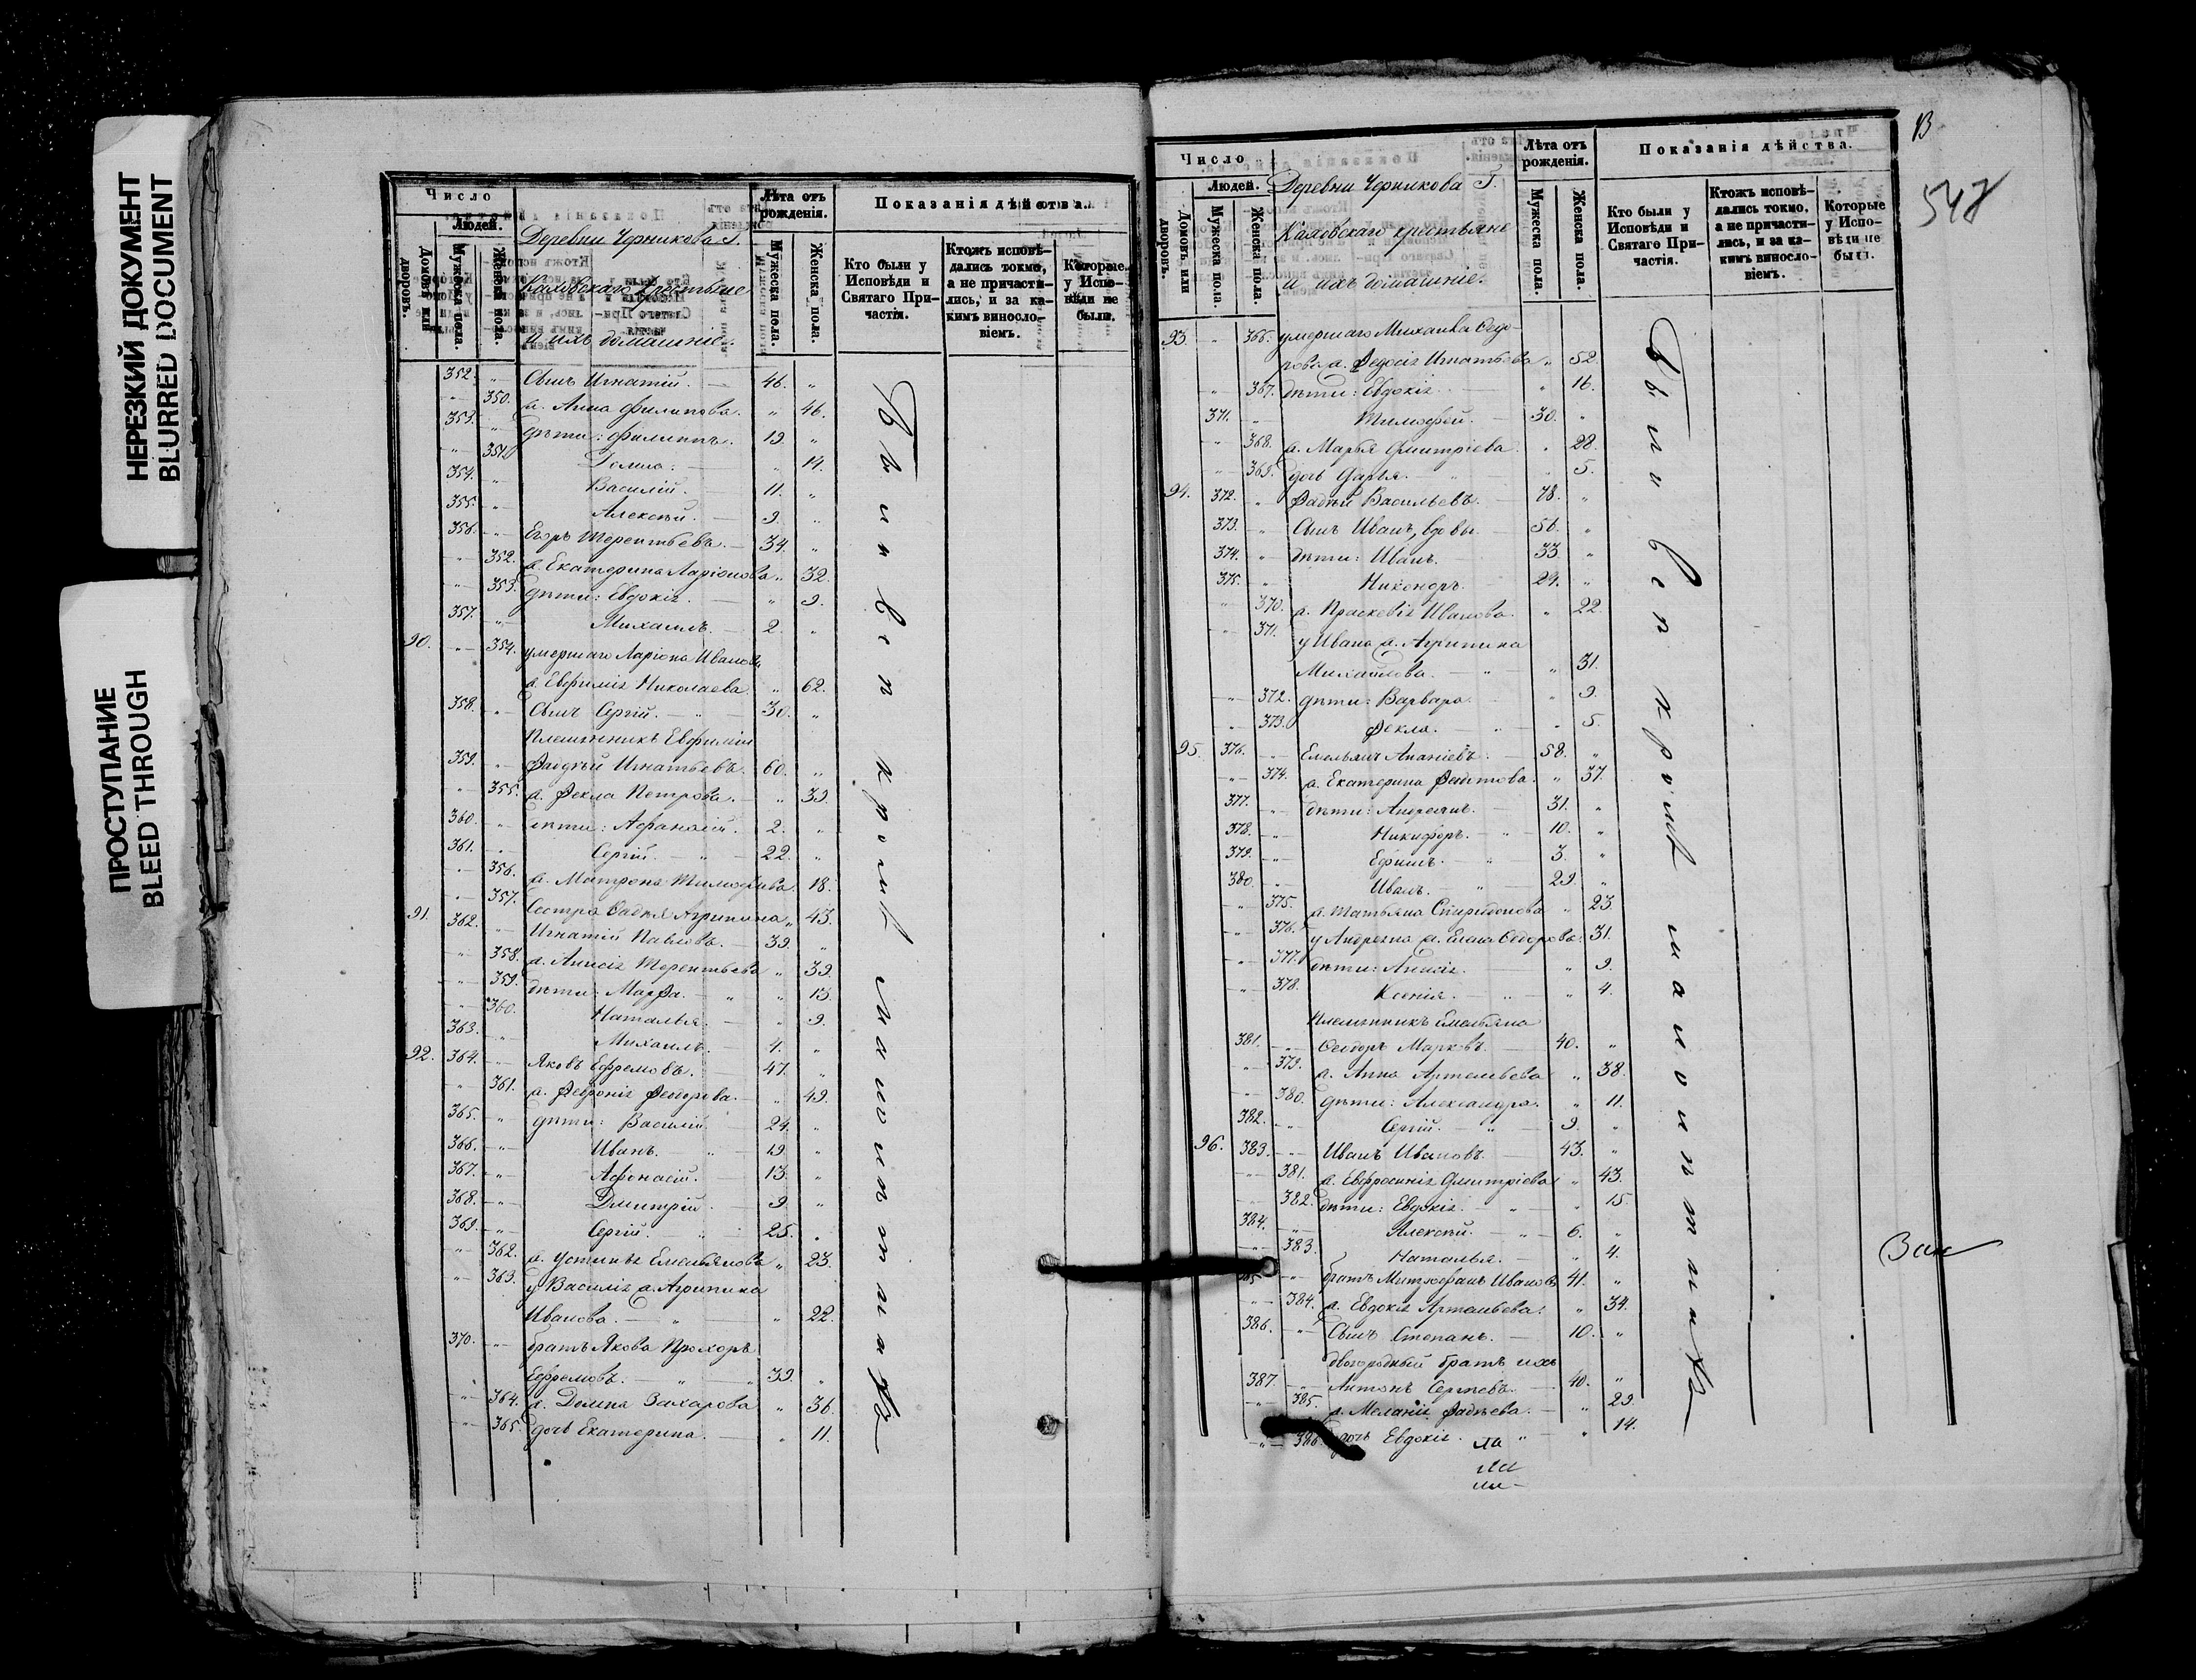 НЕРЕЗКИЙ ДОКУМЕНТ
BLURRED DOCUMENT
ПРОСТУПАНИЕ
BLEED THROUGH
Число
Людей.
Домовъ или дворовъ.
Мужеска пола.
Женска пола.
Деревни Черникова Г.
Каховскаго крестьяне
и ихъ домашніе.
Лѣта отъ рожденія.
Мужеска пола.
Женска пола.
Показанія дѣйства.
Кто были у Исповѣди и Святаго Причастія.
Ктожъ исповѣдались токмо, а не причастились, и за какимъ винословіемъ.
Которые у Исповѣди не были.
352. „ Сынъ Игнатій. 46. „
„ 350. ж. Анна Филипова. „ 46.
353. „ дѣти: Филиппъ. 19. „
„ 351. Домна. „ 14.
354. „ Василій. 11. „
355. „ Алексѣй. 9. „
356. „ Егоръ Терентьевъ. 34. „
„ 352. ж. Екатерина Ларіонова „ 32.
„ 353. дѣти: Евдокія. „ 9.
357. „ Михаилъ. 2. „
90. „ 354. умершаго Ларіона Иванова
ж. Евфимія Николаева „ 62.
358. „ Сынъ Сергій. 30. „
Племянникъ Евфиміи
359. „ Фаддѣй Игнатьевъ. 60. „
„ 355. ж. Фекла Петрова. „ 39.
360. „ дѣти: Афанасій. 2. „
361. „ Сергій. 22. „
„ 356. ж. Матрона Тимофеева 18.
„ 357. Сестра Фадѣя Агрипина „ 43.
91. 362. „ Игнатій Павловъ. 39. „
„ 358. ж. Анисія Терентьева „ 39.
„ 359. дѣти: Марфа. „ 13.
„ 360. Наталья. „ 9.
363. „ Михаилъ. 4. „
92. 364. „ Яковъ Ефремовъ. 47. „
„ 361. ж. Февронія Феодорова. „ 49.
365. „ дѣти: Василій 24. „
366. „ Иванъ. 19. „
367. „ Афонасій. 13. „
368. „ Дмитрій. 9. „
369. „ Сергій. 25. „
„ 362. ж. Устинья Емельянова „ 23.
„ 363. у Василія ж. Агрипина
Иванова. „ 22.
370. „ братъ Якова Прохоръ
Ефремовъ. 39. „
„ 364. ж. Домна Захарова „ 36.
„ 365. дочь Екатерина. „ 11.
Были всп кромѣ малолѣтнихъ
548
Число
Людей.
Домовъ или дворовъ.
Мужеска пола.
Женска пола.
Деревни Черникова Г.
Каховскаго крестьяне
и ихъ домашніе.
Лѣта отъ рожденія.
Мужеска пола.
Женска пола.
Показанія дѣйства.
Кто были у Исповѣди и Святаго Причастія.
Ктожъ исповѣдались токмо, а не причастились, и за какимъ винословіемъ.
Которые у Исповѣди не были.
93. „ 366. умершаго Михаила Седорова ж. Федосія Игнатьева „ 52.
„ 367. дѣти: Евдокія. „ 16.
371. „ Тимофей. 30. „
„ 368. ж. Марья Дмитріева. „ 28.
„ 369. дочь Дарья. „ 5.
94. 372. „ Фадѣй Васильевъ. 78. „
373. „ Сынъ Иванъ, вдовы. 56. „
374. „ дѣти: Иванъ. 33. „
375. „ Никоноръ. 29. „
„ 370. ж. Праскевія Иванова. „ 22.
„ 371. у Ивана ж. Агрипина
Михайлова. „ 31.
„ 372. дѣти: Варвара. „ 9.
„ 373. Фекла. „ 5.
95. 376. „ Емельянъ Ананіевъ. 58. „
„ 374. ж. Екатерина „ 37.
377. „ дѣти: Андреянъ. 31. „
378. „ Никифоръ. 10. „
379. „ Ефимъ. 3. „
380. „ Иванъ. 29. „
„ 375. ж. Татьяна Спиридонова „ 23.
„ 376. у Андреяна ж. Елена Федорова. 31.
„ 377. дѣти: Анисія. „ 9.
„ 378. Ксенія. „ 4.
Племянникъ Емельяна
381. „ Феодоръ Марковъ. 40. „
„ 379. ж. Анна Артемьева „ 38.
„ 380. дѣти: Александра. „ 11.
382. „ Сергій. 9. „
96. 383. „ Иванъ Ивановъ. 43. „
„ 381. ж. Евфросинія Дмитріева „ 43.
„ 382. дѣти: Евдокія. „ 15.
384. „ Алексѣй. 6. „
„ 383. Наталья. „ 4.
385. „ братъ Митрофанъ Ивановъ 41. „
„ 384. ж. Евдокія Артемьева. „ 34.
386. „ Сынъ Степанъ. 10. „
двоюродный братъ ихъ
387. „ Антонъ Сергѣевъ. 40. „
„ 385. ж. Меланія Фадѣева. „ 29.
„ 386. дочь Евдокія. „ 14.
Были всп кромѣ малолѣтнихъ